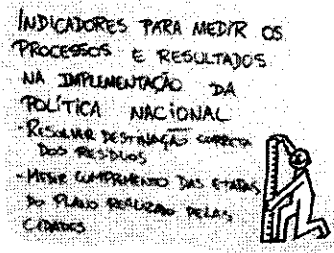 INDICADORES PARA MEDIR OS
PROCESSOS E RESULTADOS
NA IMPLEMENTAÇÃO DA
POLÍTICA NACIONAL
- RESOLVER DESTINAÇÃO CORRETA
DOS RESÍDUOS
- MEDIR CUMPRIMENTO DAS ETAPAS
DO PLANO REALIZADO PELAS
CIDADES